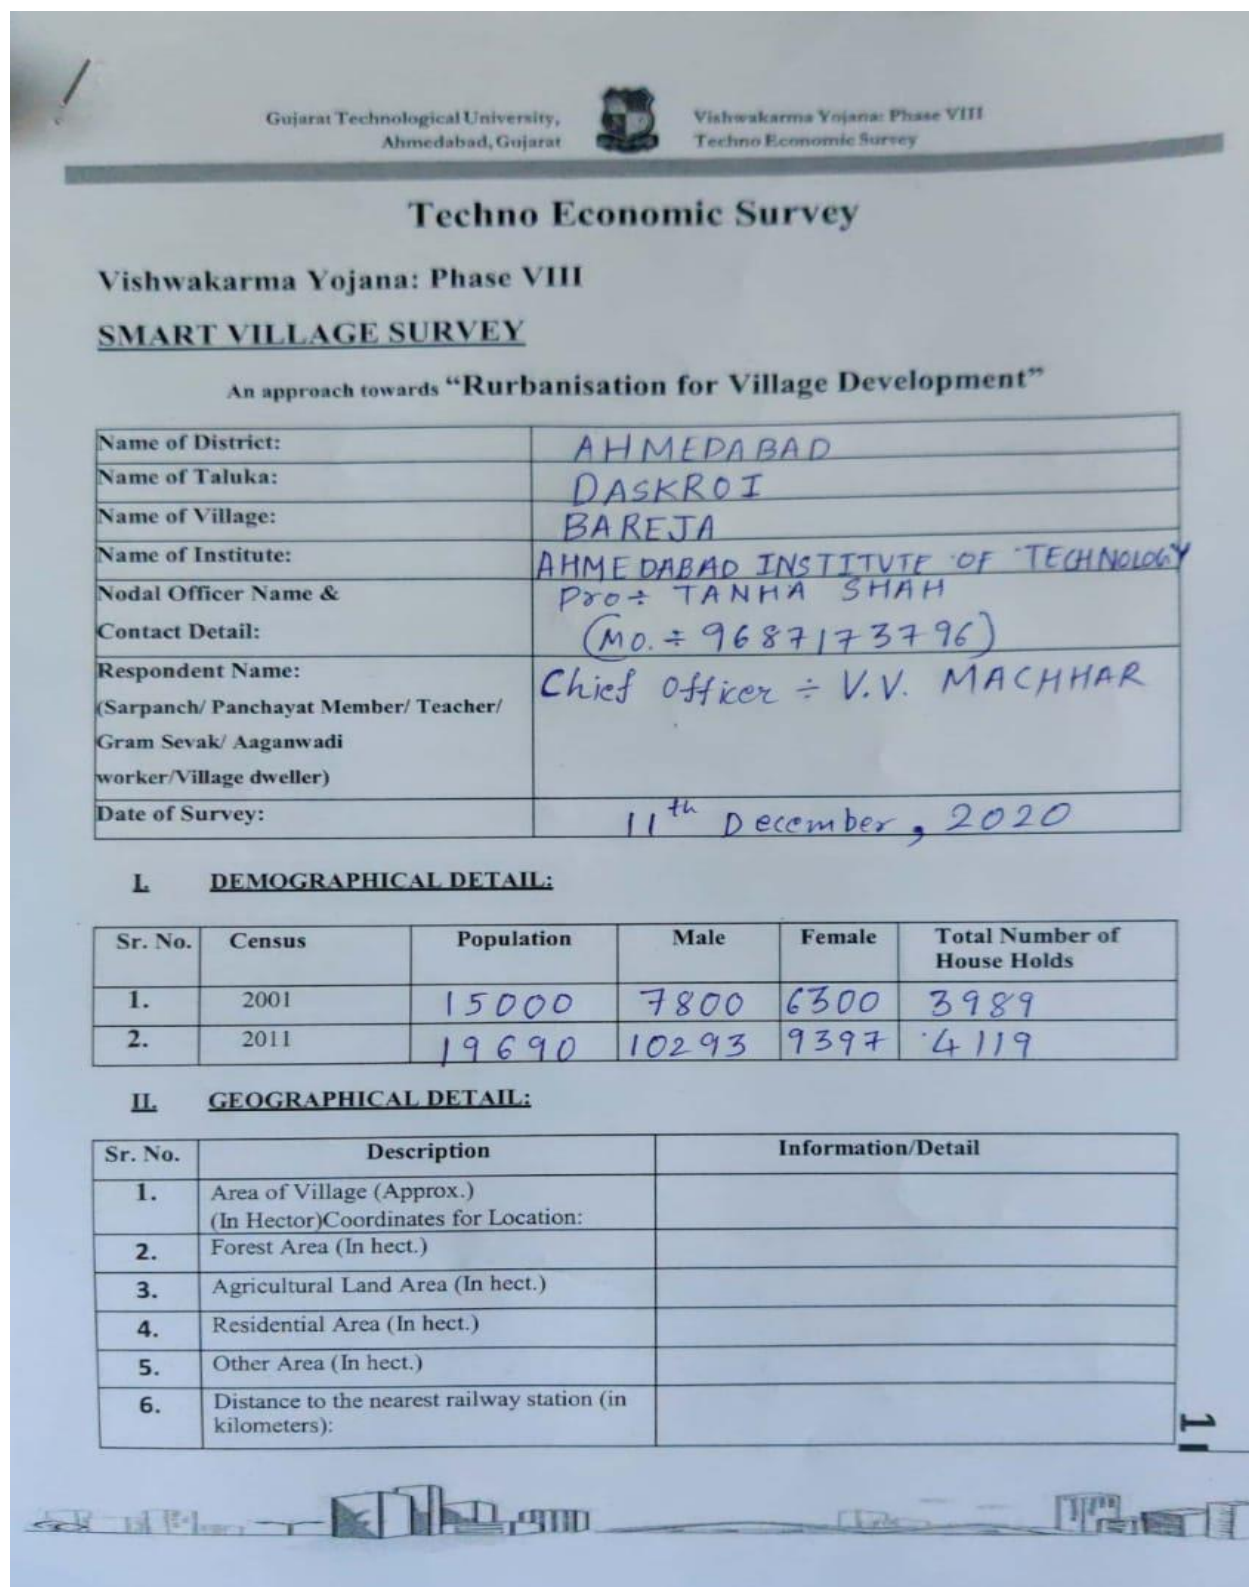 Gujarat Technological University,
Ahmedabad, Gujarat
Vishwakarma Yojana: Phase VIII
Techno Economic Survey
Techno Economic Survey
Vishwakarma Yojana: Phase VIII
SMART VILLAGE SURVEY
An approach towards “Rurbanisation for Village Development”
Name of District: AHMEDABAD
Name of Taluka: DASKROI
Name of Village: BAREJA
Name of Institute: AHMEDABAD INSTITUTE OF TECHNOLOGY
Nodal Officer Name & Pro÷ TANHA SHAH
Contact Detail: (Mo. ÷ 9687173796)
Respondent Name: Chief Officer ÷ V.V. MACHHAR
(Sarpanch/ Panchayat Member/ Teacher/
Gram Sevak/ Aaganwadi
worker/Village dweller)
Date of Survey: 11th December, 2020
I. DEMOGRAPHICAL DETAIL:
Sr. No. Census Population Male Female Total Number of
House Holds
1. 2001 15000 7800 6300 3989
2. 2011 19690 10293 9397 4119
II. GEOGRAPHICAL DETAIL:
Sr. No. Description Information/Detail
1. Area of Village (Approx.)
(In Hector)Coordinates for Location:
2. Forest Area (In hect.)
3. Agricultural Land Area (In hect.)
4. Residential Area (In hect.)
5. Other Area (In hect.)
6. Distance to the nearest railway station (in
kilometers):
1